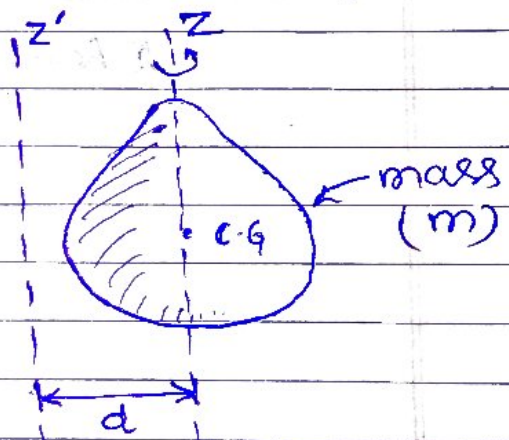 Z' Z
mass
(m)
C.G
d